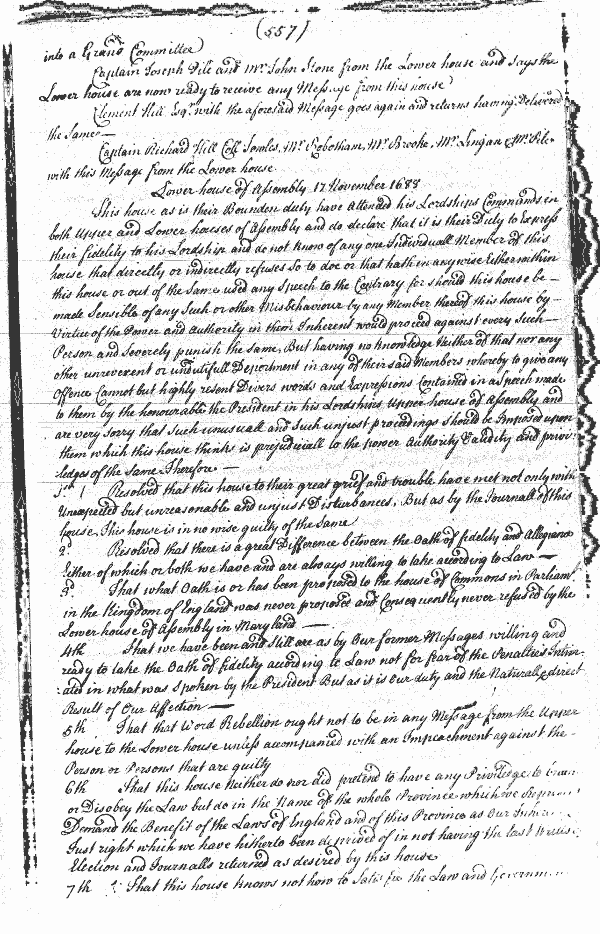 (557)
into a Grand Committee
Captain Joseph Pile and Mr. John Stone from the Lower house and says the
Lower house are now ready to receive any Message from this house
Clement Hill Esqr. with the aforesaid Message goes again and returns having Delivered
the Same —
Captain Richard Hill Coll Jowles, Mr. Robotham, Mr. Brooke, Mr. Lingan & Mr. Pile
with this Message from the Lower house
Lower house of Assembly 17 November 1688
This house as is their Bounden duty have Attended his Lordships Commands in
both Upper and Lower houses of Assembly and do declare that it is their Duty to Express
their fidelity to his Lordship and do not know of any one Individuall Member of this
house that directly or indirectly refuses So to doe or that hath in any wise Either within
this house or out of the Same used any Speech to the Contrary for should this house be
made Sensible of any Such or other Misbehaviour by any Member thereof this house by
Virtue of the Power and Authority in them Inherent would proceed against every Such
Person and Severely punish the same, But having no knowledge Neither of that nor any
other unreverent or undutifull Deportment in any of their said Members whereby to give any
Offence Cannot but highly resent Divers words and Expressions Contained in a Speech made
to them by the honourable the President in his Lordships Upper house of Assembly and
are very sorry that Such unusuall and Such unjust proceedings Should be Imposed upon
them which this house thinks is prejudiciall to the power Authority Validity and privi-
ledges of the Same Therefore —
1 Resolved that this house to their great grief and trouble have met not only with
Unexpected but unreasonable and unjust Disturbances, But as by the Journall of this
house, This house is in no wise guilty of the Same
2d Resolved that there is a great Difference between the Oath of fidelity and Allegiance
Either of which or both we have and are always willing to take according to Law —
3d That what Oath is or has been proposed to the house of Commons in Parliamt.
in the Kingdom of England was never proposed and Consequently never refused by the
Lower house of Assembly in Maryland —
4th That we have been and Still are as by Our former Messages willing and
ready to take the Oath of fidelity according to Law not for fear of the Penalties Intim-
ated in what was Spoken by the President But as it is Our duty and the Naturall & direct
Result of Our Affection —
5th That that Word Rebellion ought not to be in any Message from the Upper
house to the Lower house unless accompanied with an Impeachment against the
Person or Persons that are guilty
6th That this house Neither do nor did pretend to have any Priviledge to
or Disobey the Law but do in the Name of the whole Province which we
Demand the Benefit of the Laws of England and of this Province as Our
Just right which we have hitherto been deprived of in not having the last
Election and Journalls returned as desired by this house
7th That this house knows not how to Satisfie the Law and